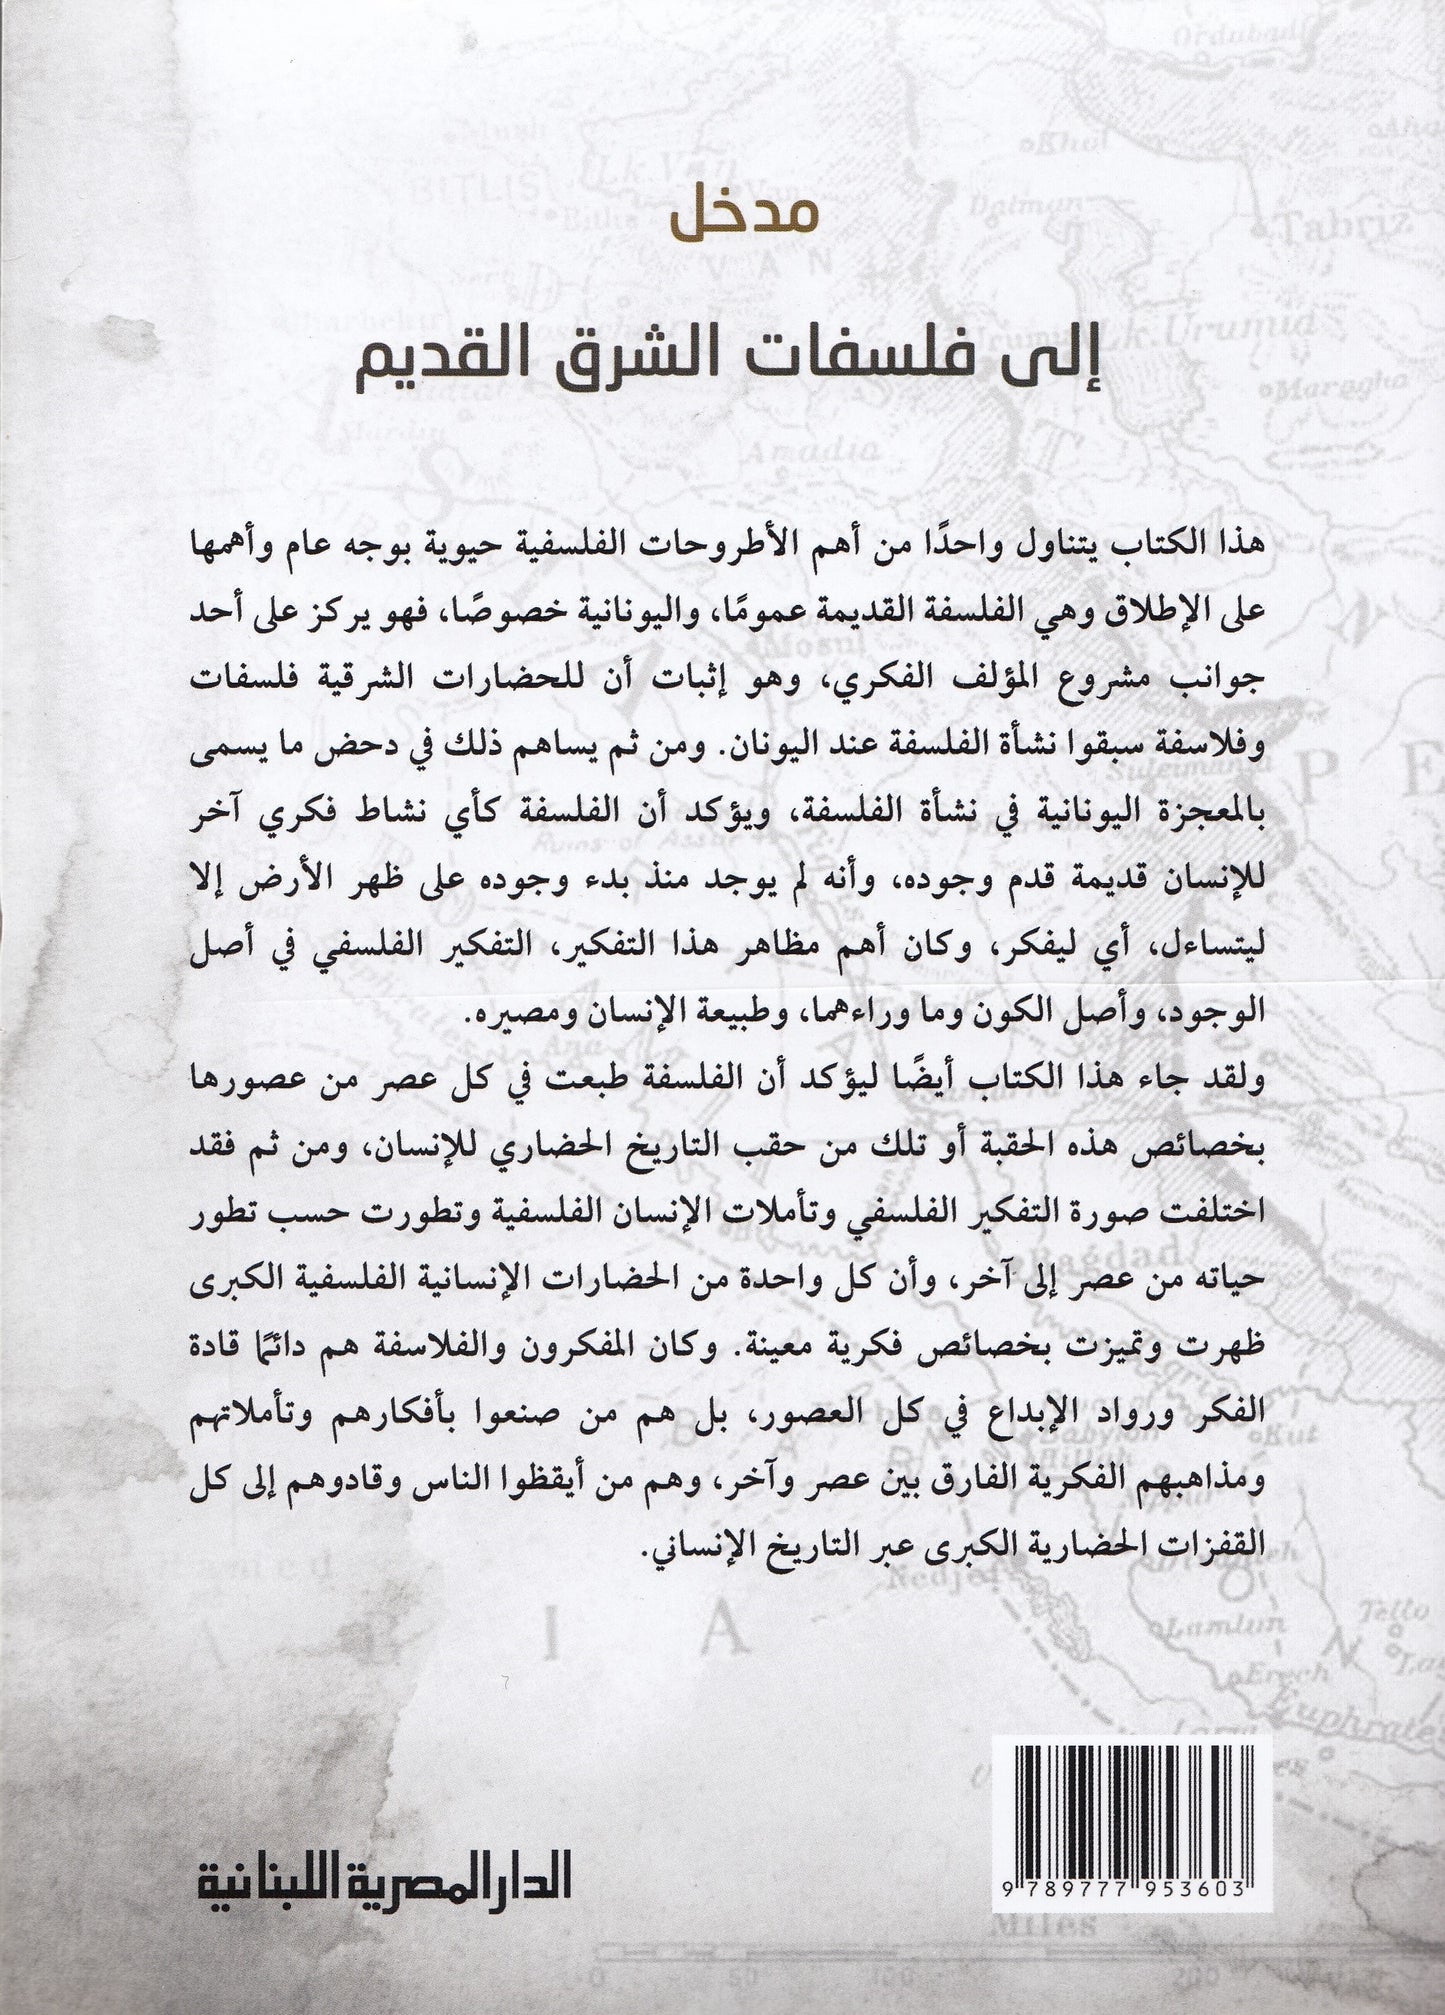 مدخل
إلى فلسفات الشرق القديم
هذا الكتاب يتناول واحدًا من أهم الأطروحات الفلسفية حيوية بوجه عام وأهمها
على الإطلاق وهي الفلسفة القديمة عمومًا، واليونانية خصوصًا، فهو يركز على أحد
جوانب مشروع المؤلف الفكري، وهو إثبات أن للحضارات الشرقية فلسفات
وفلاسفة سبقوا نشأة الفلسفة عند اليونان. ومن ثم يساهم ذلك في دحض ما يسمى
بالمعجزة اليونانية في نشأة الفلسفة، ويؤكد أن الفلسفة كأي نشاط فكري آخر
للإنسان قديمة قدم وجوده، وأنه لم يوجد منذ بدء وجوده على ظهر الأرض إلا
ليتساءل، أي ليفكر، وكان أهم مظاهر هذا التفكير، التفكير الفلسفي في أصل
الوجود، وأصل الكون وما وراءهما، وطبيعة الإنسان ومصيره.
ولقد جاء هذا الكتاب أيضًا ليؤكد أن الفلسفة طبعت في كل عصر من عصورها
بخصائص هذه الحقبة أو تلك من حقب التاريخ الحضاري للإنسان، ومن ثم فقد
اختلفت صورة التفكير الفلسفي وتأملات الإنسان الفلسفية وتطورت حسب تطور
حياته من عصر إلى آخر، وأن كل واحدة من الحضارات الإنسانية الفلسفية الكبرى
ظهرت وتميزت بخصائص فكرية معينة. وكان المفكرون والفلاسفة هم دائمًا قادة
الفكر ورواد الإبداع في كل العصور، بل هم من صنعوا بأفكارهم وتأملاتهم
ومذاهبهم الفكرية الفارق بين عصر وآخر، وهم من أيقظوا الناس وقادوهم إلى كل
القفزات الحضارية الكبرى عبر التاريخ الإنساني.
Ordubad
Khoi
BITLIS
L.k.Van
Van
Bitlis
Dalman
Tabriz
VAN
L.k.Urumia
Maragha
Mardin
Amadia
Mosul
Suleimania
PE
Ana
Bagdad
Babylon
Hillah
Kut
Nedjef
I A
Lamlun
Tello
Erech
Euphrates
9 789777 953603
الدار المصرية اللبنانية
Miles
0 50 100 200